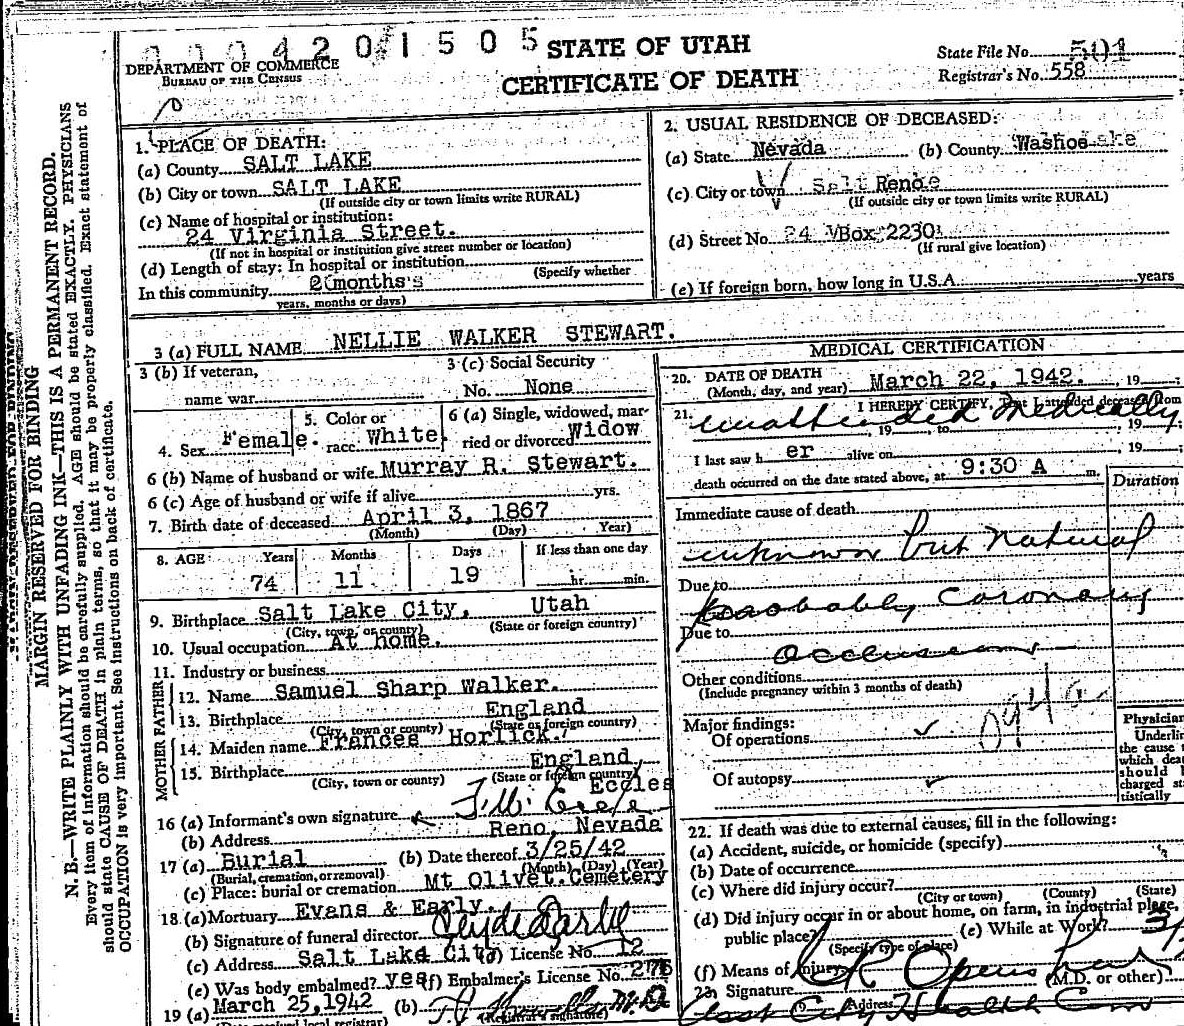 0004201505 STATE OF UTAH
DEPARTMENT OF COMMERCE
BUREAU OF THE CENSUS
CERTIFICATE OF DEATH
State File No. 501
Registrar's No. 558
MARGIN RESERVED FOR BINDING
N. B.—WRITE PLAINLY WITH UNFADING INK—THIS IS A PERMANENT RECORD.
Every item of information should be carefully supplied. AGE should be stated EXACTLY. PHYSICIANS
should state CAUSE OF DEATH in plain terms, so that it may be properly classified. Exact statement of
OCCUPATION is very important. See instructions on back of certificate.
1. PLACE OF DEATH:
(a) County SALT LAKE
(b) City or town SALT LAKE
(If outside city or town limits write RURAL)
(c) Name of hospital or institution:
24 Virginia Street.
(If not in hospital or institution give street number or location)
(d) Length of stay: In hospital or institution
(Specify whether
In this community 2 months
years, months or days)
2. USUAL RESIDENCE OF DECEASED:
(a) State Nevada (b) County Washoe
(c) City or town Reno
(If outside city or town limits write RURAL)
(d) Street No. Box 2230
(If rural give location)
(e) If foreign born, how long in U.S.A. years
3 (a) FULL NAME NELLIE WALKER STEWART.
3 (b) If veteran,
name war
3 (c) Social Security
No. None
4. Sex Female.
5. Color or
race White.
6 (a) Single, widowed, mar-
ried or divorced Widow
6 (b) Name of husband or wife Murray R. Stewart.
6 (c) Age of husband or wife if alive yrs.
7. Birth date of deceased April 3, 1867
(Month) (Day) Year)
8. AGE Years Months Days If less than one day
74 11 19 hr. min.
9. Birthplace Salt Lake City, Utah
(City, town, or county) (State or foreign country)
10. Usual occupation At home.
11. Industry or business
FATHER
12. Name Samuel Sharp Walker.
13. Birthplace England
(City, town or county) (State or foreign country)
MOTHER
14. Maiden name Frances Horlick.
15. Birthplace England,
(City, town or county) (State or foreign country)
Eccles
16 (a) Informant's own signature
(b) Address Reno, Nevada
17 (a) Burial (b) Date thereof 3/25/42
(Burial, cremation, or removal) (Month) (Day) (Year)
(c) Place: burial or cremation Mt Olivet Cemetery
18 (a) Mortuary Evans & Early.
(b) Signature of funeral director Clyde Early
(c) Address Salt Lake City (d) License No. 12
(e) Was body embalmed? yes (f) Embalmer's License No.
19 (a) March 25, 1942 (b)
(Registrar's signature)
MEDICAL CERTIFICATION
20. DATE OF DEATH
(Month, day, and year) March 22, 1942. , 19
21. I HEREBY CERTIFY, That I attended deceased from
unattended medically
, 19 , to , 19
I last saw h er alive on , 19 ;
death occurred on the date stated above, at 9:30 A m.
Duration
Immediate cause of death
unknown but natural
Due to
probably coronary
Due to
occlusion
Other conditions
(Include pregnancy within 3 months of death)
Major findings:
Of operations
Of autopsy
094a
Physician
Underlin
the cause
which dea
should
charged st
tistically
22. If death was due to external causes, fill in the following:
(a) Accident, suicide, or homicide (specify)
(b) Date of occurrence
(c) Where did injury occur?
(City or town) (County) (State)
(d) Did injury occur in or about home, on farm, in industrial place,
public place? (e) While at Work?
(Specify type of place)
(f) Means of Injury
23. Signature (M.D. or other)
Address City Health Com